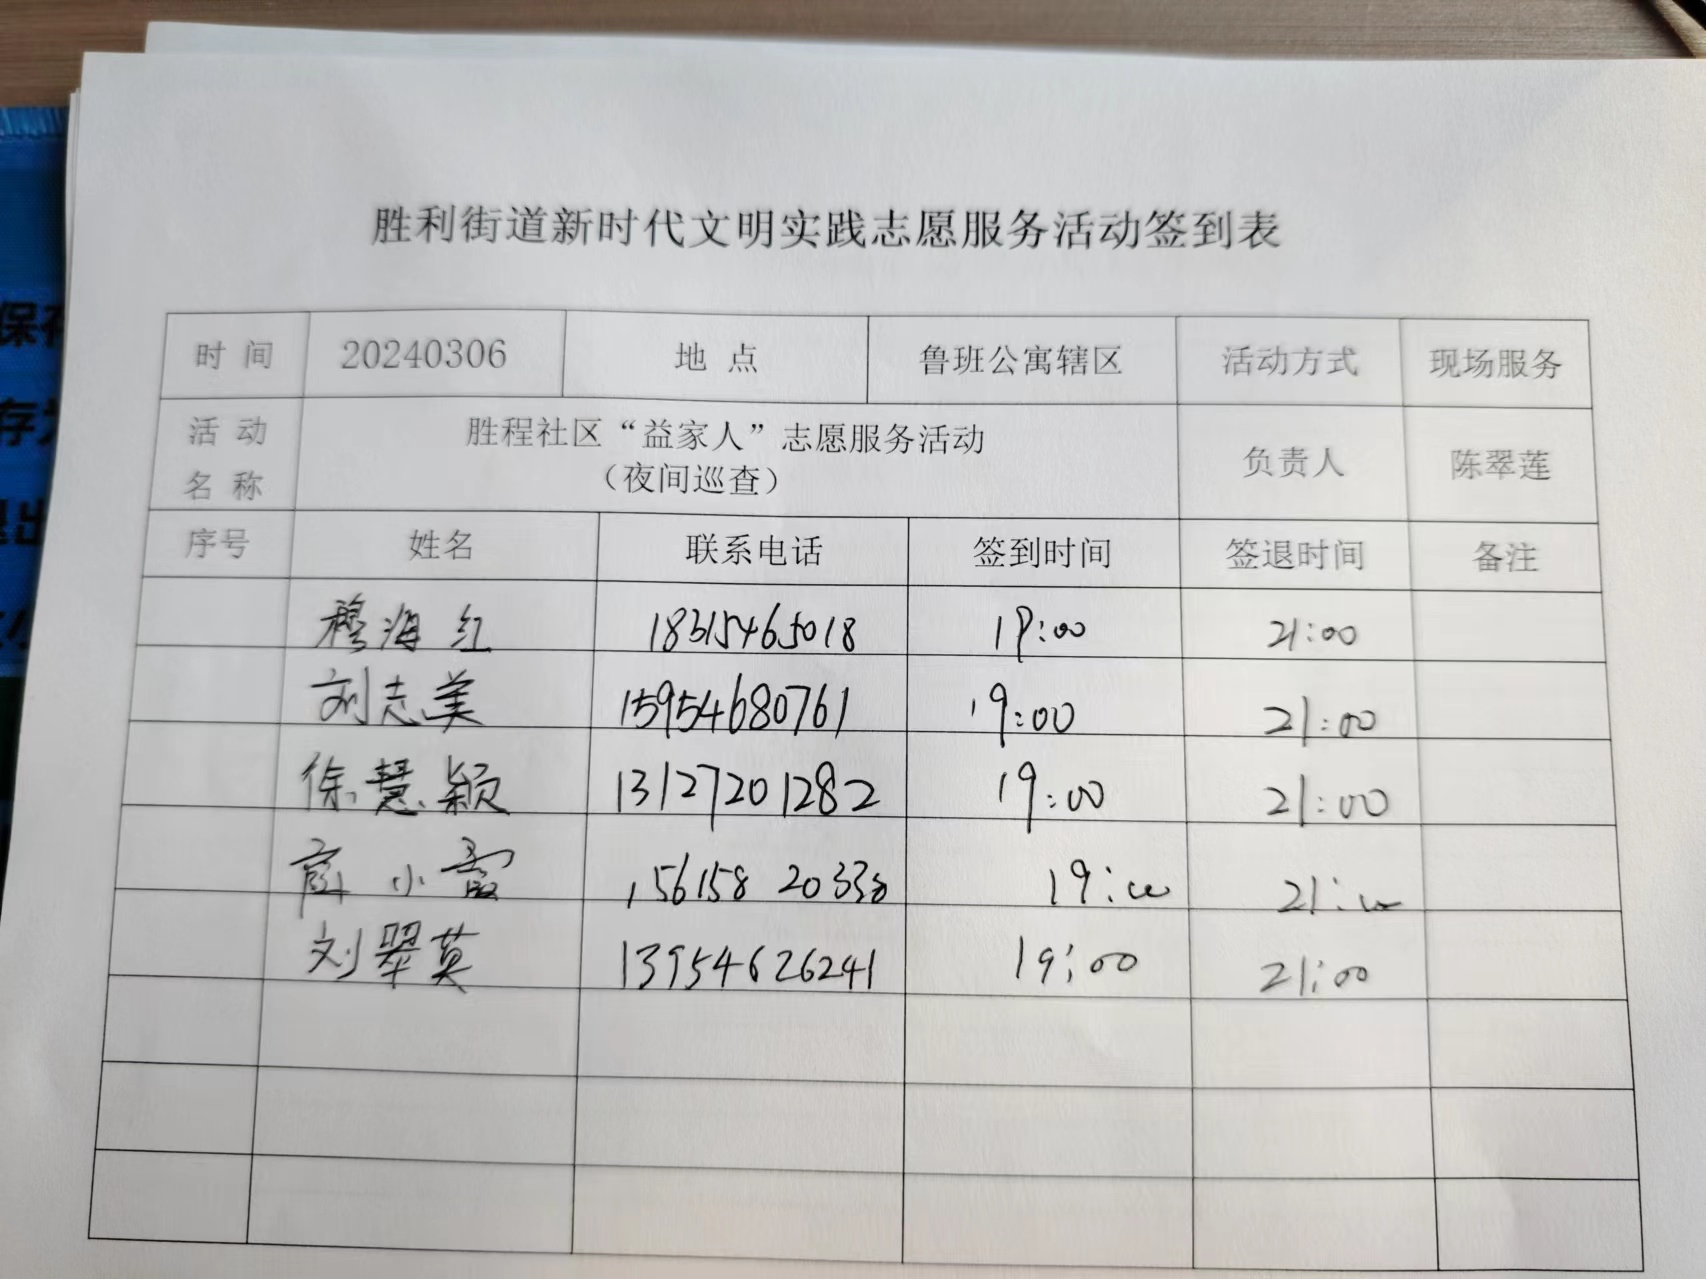 胜利街道新时代文明实践志愿服务活动签到表
时 间 20240306 地 点 鲁班公寓辖区 活动方式 现场服务
活 动 名 称 胜程社区“益家人”志愿服务活动 负责人 陈翠莲
（夜间巡查）
序号 姓名 联系电话 签到时间 签退时间 备注
穆海红 18315465018 19:00 21:00
刘志美 15954680761 19:00 21:00
徐慧颖 13127201282 19:00 21:00
小霞 15615820338 19:00 21:00
刘翠英 13954626241 19:00 21:00
保存
存为